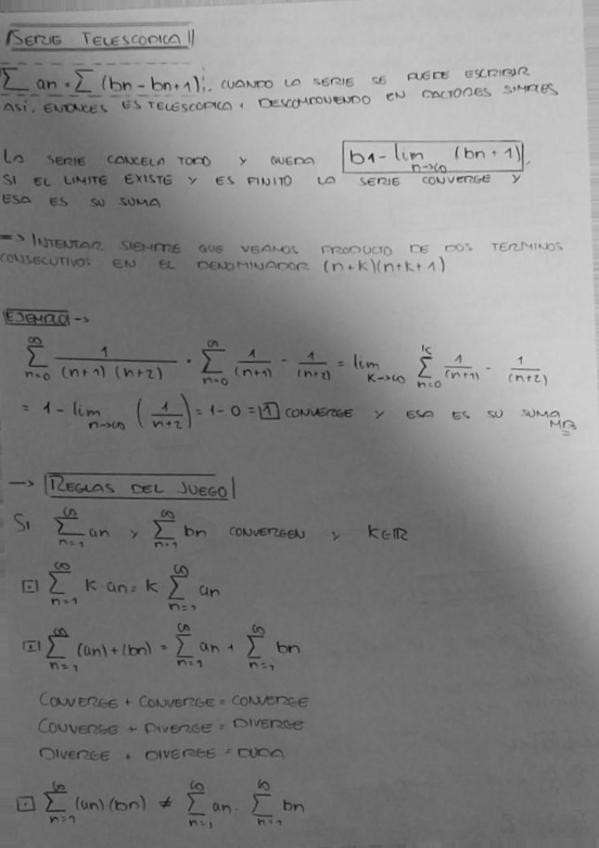 SERIE TELESCOPICA
∑ an = ∑ (bn - bn+1). CUANDO LA SERIE SE PUEDE ESCRIBIR
ASÍ, ENTONCES ES TELESCOPICA, DESCOMPONIENDO EN FACTORES SIMPLES
LA SERIE CANCELA TODO Y QUEDA b1 - lim n->∞ (bn+1)
SI EL LIMITE EXISTE Y ES FINITO LA SERIE CONVERGE Y
ESA ES SU SUMA
=> INTENTAR SIEMPRE QUE VEAMOS PRODUCTO DE DOS TERMINOS
CONSECUTIVOS EN EL DENOMINADOR (n+k)(n+k+1)
EJEMPLO ->
∞∑n=0 1/(n+1)(n+2) = ∞∑n=0 1/(n+1) - 1/(n+2) = lim K->∞ K∑n=0 1/(n+1) - 1/(n+2)
= 1 - lim n->∞ (1/n+2) = 1-0 = 1 CONVERGE Y ESA ES SU SUMA
MB
-> REGLAS DEL JUEGO
SI ∞∑n=1 an Y ∞∑n=1 bn CONVERGEN Y K∈ℝ
∞∑n=1 K·an = K ∞∑n=1 an
∞∑n=1 (an)+(bn) = ∞∑n=1 an + ∞∑n=1 bn
CONVERGE + CONVERGE = CONVERGE
CONVERGE + DIVERGE = DIVERGE
DIVERGE + DIVERGE = DUDA
∞∑n=1 (an)(bn) ≠ ∞∑n=1 an · ∞∑n=1 bn